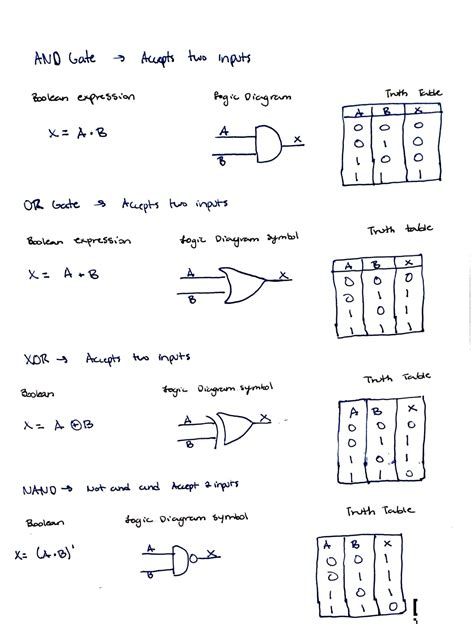 AND Gate → Accepts two inputs
Boolean expression Logic Diagram Truth Table
X = A · B A B X
A B X
0 0 0
0 1 0
1 0 0
1 1 1
OR Gate → Accepts two inputs
Boolean expression Logic Diagram Symbol Truth table
X = A + B A B X
A B X
0 0 0
0 1 1
1 0 1
1 1 1
XOR → Accepts two inputs
Boolean Logic Diagram Symbol Truth Table
X = A ⊕ B A B X
A B X
0 0 0
0 1 1
1 0 1
1 1 0
NAND → Not and and Accept 2 inputs
Boolean Logic Diagram Symbol Truth Table
X = (A · B)' A B X
A B X
0 0 1
0 1 1
1 0 1
1 1 0